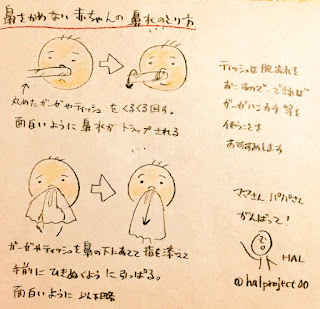 鼻をかめない赤ちゃんの鼻水のとり方
丸めたガーゼやティッシュをくるくる回す。
面白いように鼻水がトラップされる
ガーゼやティッシュを鼻の下にあてて指を添えて
手前にひきぬくように引っぱる。
面白いように 以下略
ティッシュは肌荒れを
おこすので
ガーゼハンカチ等を
使うことを
おすすめします
ママさん パパさん
がんばって!
HAL
@halproject00